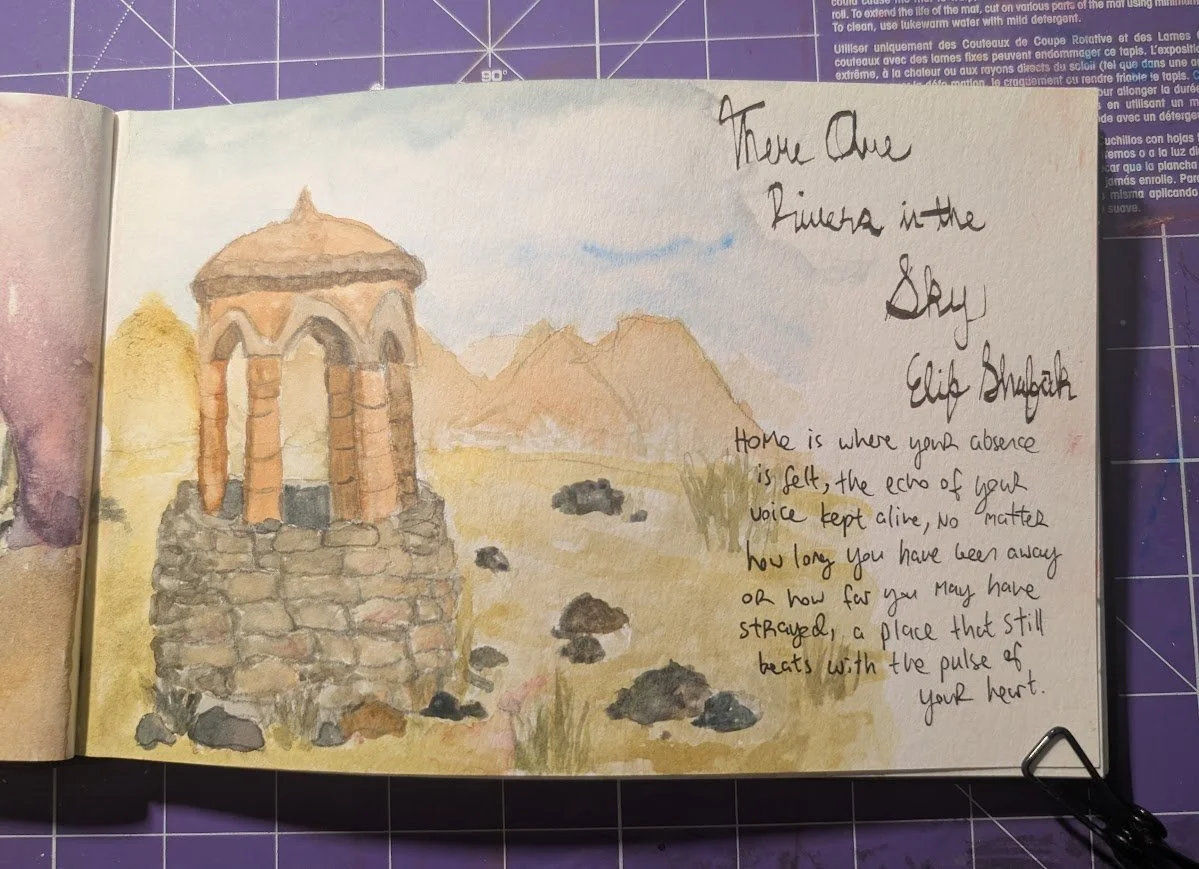 90°
roll. To extend the life of the mat, cut on various parts of the mat using minimum
To clean, use lukewarm water with mild detergent.
Utiliser uniquement des Couteaux de Coupe Rotative et des Lames
couteaux avec des lames fixes peuvent endommager ce tapis. L'exposition
extrême, à la chaleur ou aux rayons directs du soleil (tel que dans une
le craquement ou rendre friable le tapis.
pour allonger la durée
en utilisant un
avec un
cuchillos con hojas
o a la luz
que la plancha
jamás enrolle. Para
misma aplicando
suave.
There Are
Rivers in the
Sky
Elif Shafak
Home is where your absence
is felt, the echo of your
voice kept alive, no matter
how long you have been away
or how far you may have
strayed, a place that still
beats with the pulse of
your heart.